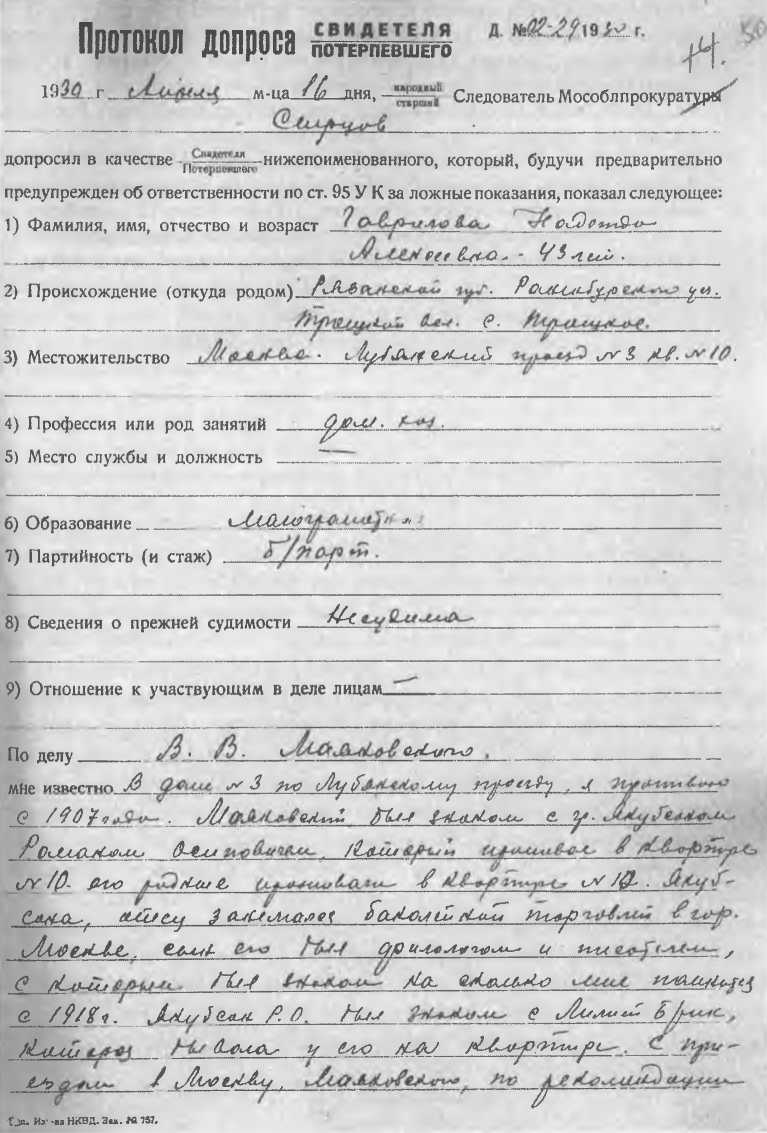 Протокол допроса СВИДЕТЕЛЯ ПОТЕРПЕВШЕГО Д. № 02-29 1930 г.
14. 50
1930 г Апреля м-ца 16 дня, народный старший Следователь Мособлпрокуратуры
Сырцов
допросил в качестве Свидетеля Потерпевшего нижепоименованного, который, будучи предварительно
предупрежден об ответственности по ст. 95 У К за ложные показания, показал следующее:
1) Фамилия, имя, отчество и возраст Гаврилова Надежда
Алексеевна - 43 лет.
2) Происхождение (откуда родом) Рязанской губ. Раненбурского уез.
Троицкой вол. с. Троицкое.
3) Местожительство Москва. Лубянский проезд № 3 кв. № 10.
4) Профессия или род занятий дом. хоз.
5) Место службы и должность —
6) Образование Малограмотная
7) Партийность (и стаж) б/парт.
8) Сведения о прежней судимости Несудима
9) Отношение к участвующим в деле лицам —
По делу В. В. Маяковского.
мне известно В доме № 3 по Лубянскому проезду, я проживаю
с 1907 года. Маяковский был знаком с гр. Якубсоном
Романом Осиповичем, который проживал в квартире
№ 10. его родные проживали в квартире № 12. Якуб-
сона, отец занимался бакалейной торговлей в гор.
Москве, сын его был филологом и писателем,
с которым был знаком на сколько мне помнится
с 1918 г. Якубсон Р.О. был знаком с Лилией Брик,
которая бывала у его на квартире. С при-
ездом в Москву, Маяковского, по рекомендации
Тип. Из-ва НКВД. Зак. № 757.